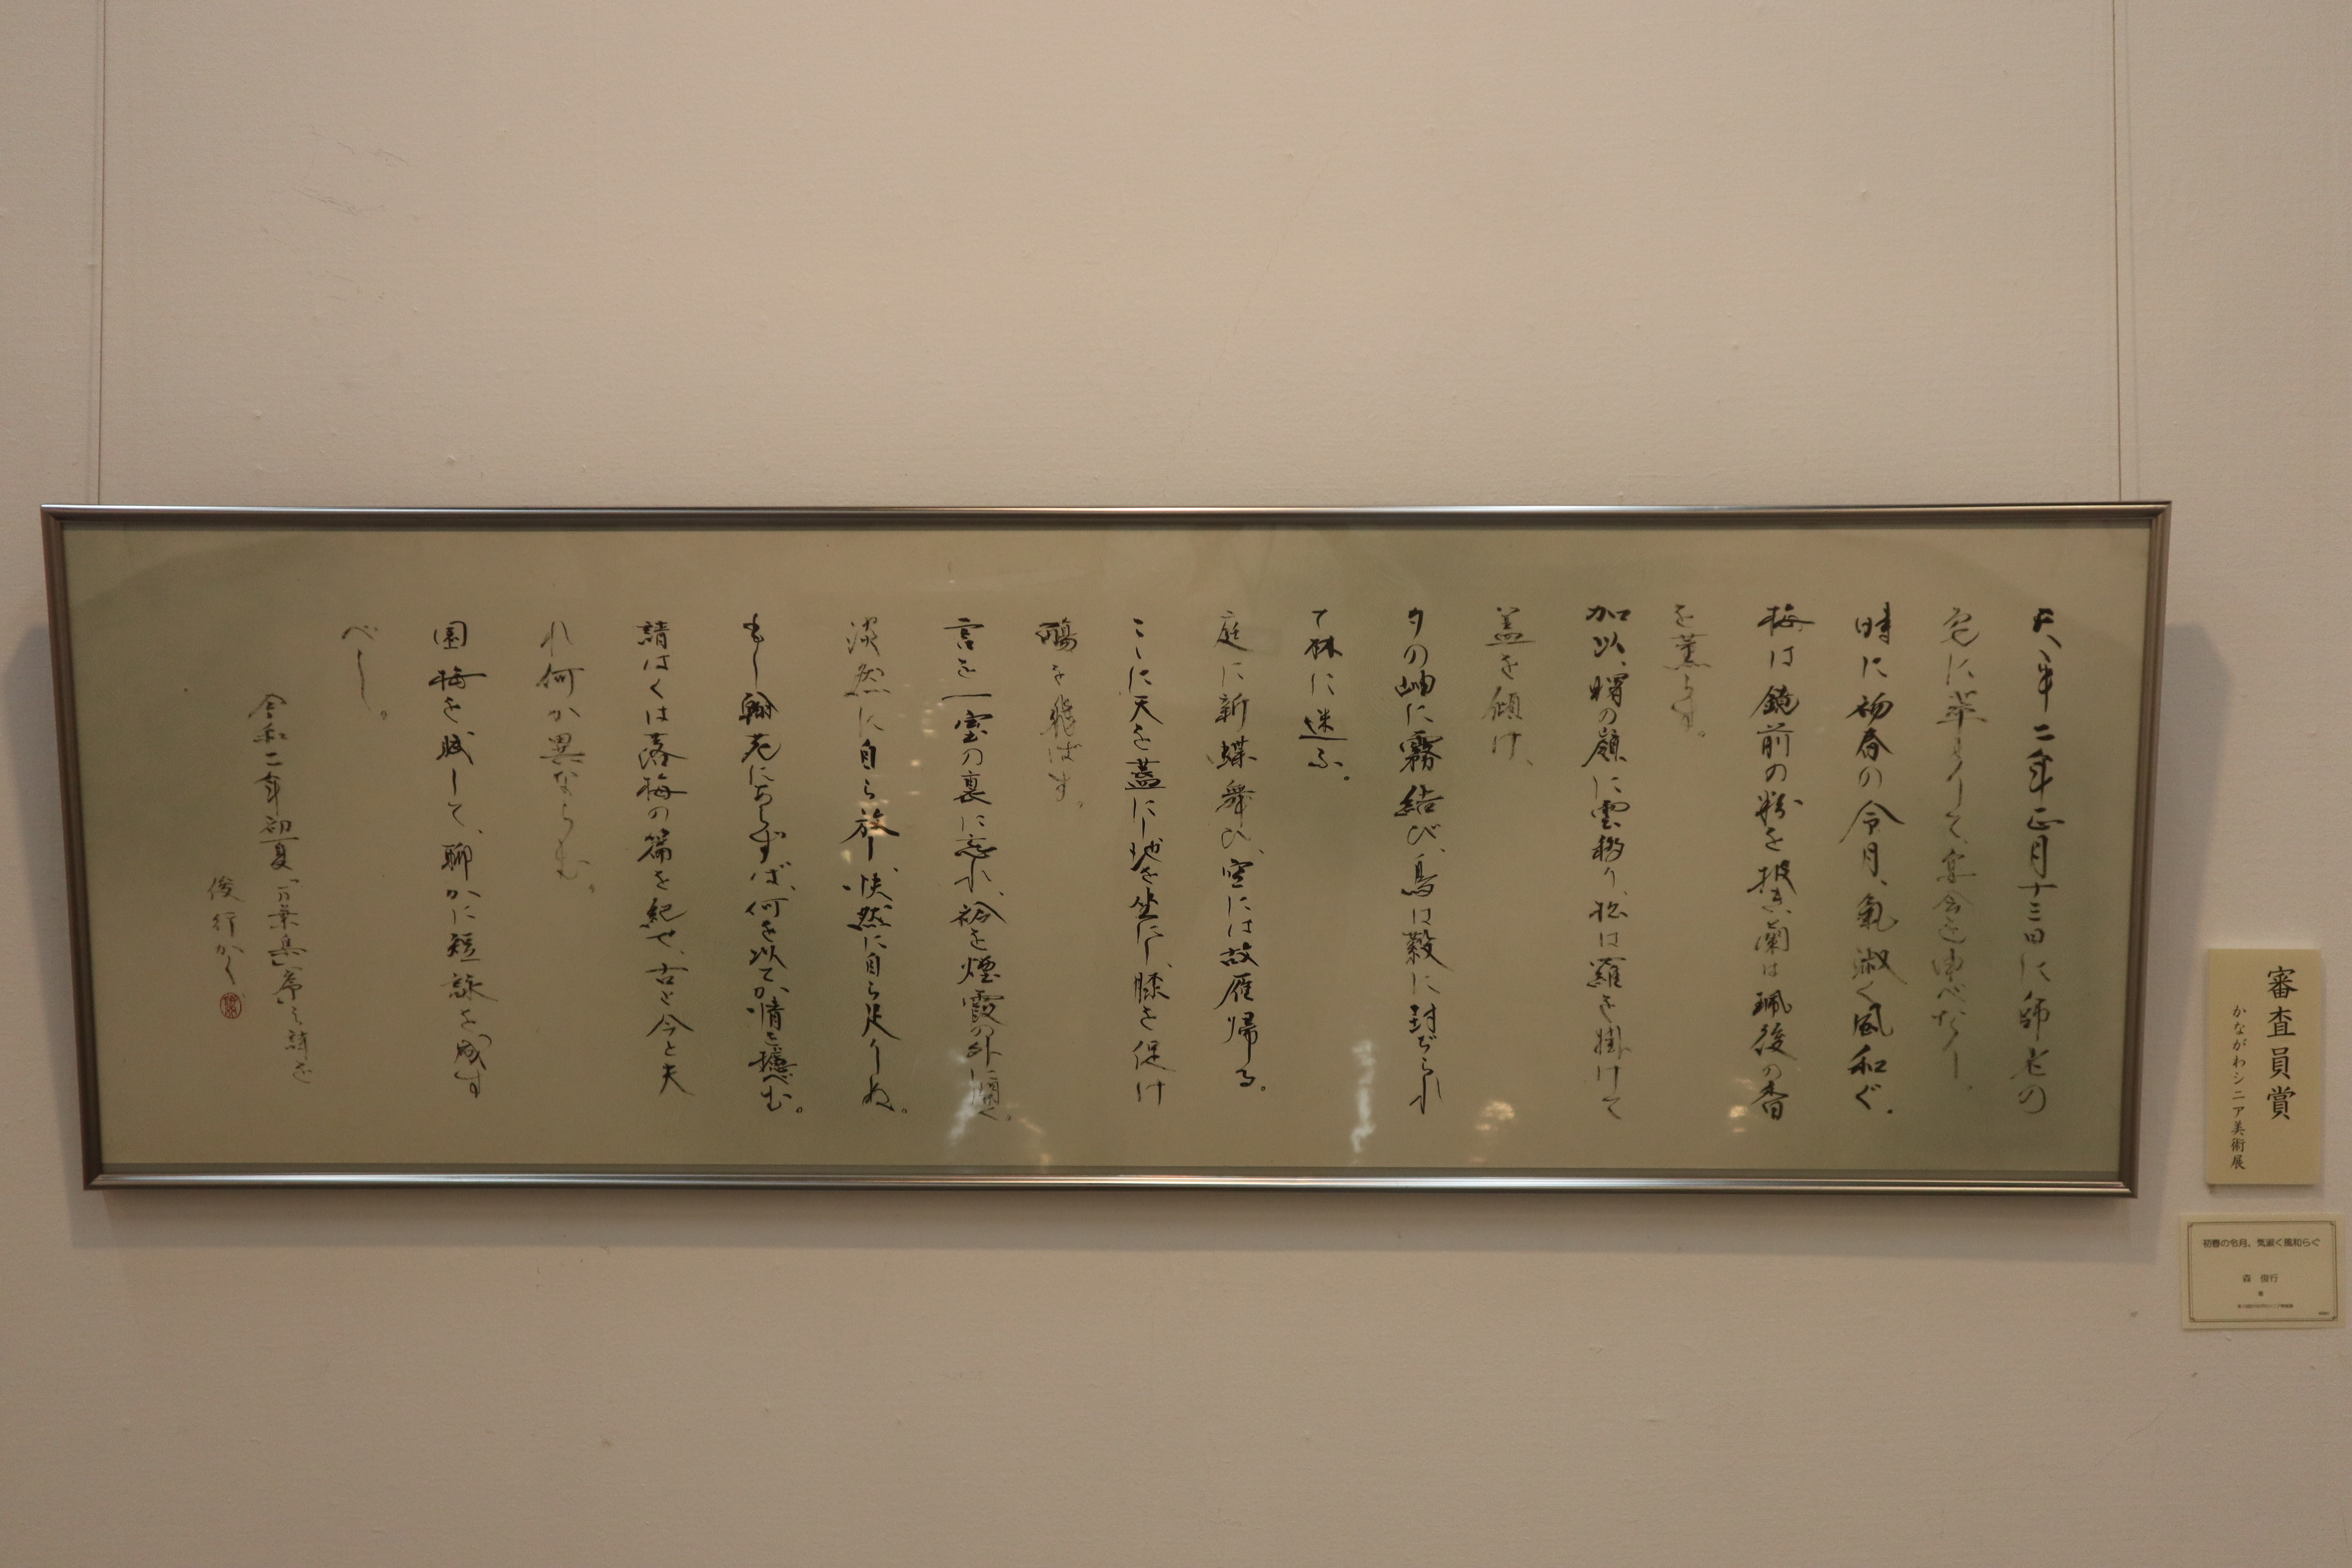 天平二年正月十三日に師老の
宅に萃まりて、宴会を申べたり。
時に初春の令月、氣淑く風和ぐ。
梅は鏡前の粉を披き、蘭は珮後の香
を薫らす。
加以、曙の嶺に雲移り、松は羅を掛けて
蓋を傾け、
夕の岫に霧結び、鳥は縠に封ぢられ
て林に迷ふ。
庭に新蝶舞ひ、空には故雁帰る。
ここに天を蓋にし地を坐にし、膝を促け
觴を飛ばす。
言を一室の裏に忘れ、衿を煙霞の外に開く。
淡然に自ら放し、快然に自ら足りぬ。
もし翰苑にあらずば、何を以てか情を攄べむ。
請はくは落梅の篇を紀せ、古と今と夫
れ何か異ならむ。
園梅を賦して、聊かに短詠を成す
べし。
令和二年初夏「万葉集」序の詩を
俊行かく
審査員賞
かながわシニア美術展
初春の令月、気淑く風和らぐ
森 俊行
書